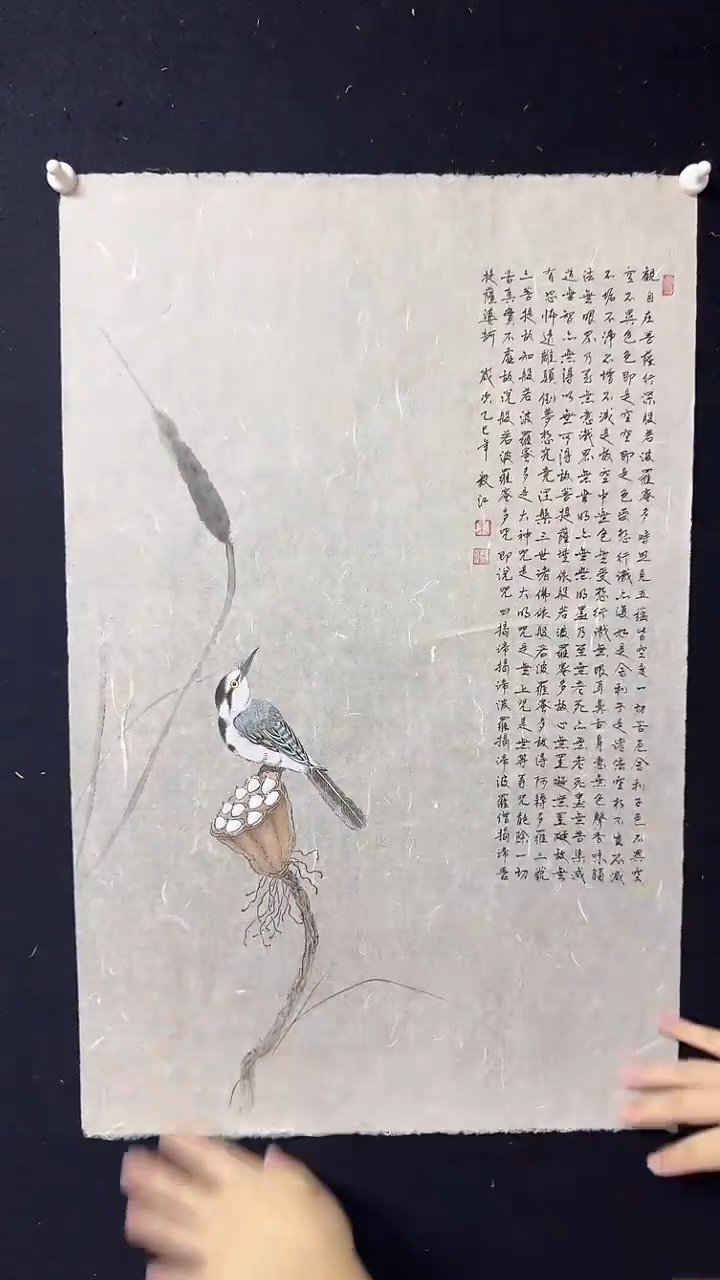 觀自在菩薩行深般若波羅蜜多時照見五蘊皆空度一切苦厄舍利子色不異空
空不異色色即是空空即是色受想行識亦復如是舍利子是諸法空相不生不滅
不垢不淨不增不減是故空中無色無受想行識無眼耳鼻舌身意無色聲香味觸
法無眼界乃至無意識界無無明亦無無明盡乃至無老死亦無老死盡無苦集滅
道無智亦無得以無所得故菩提薩埵依般若波羅蜜多故心無罣礙無罣礙故無
有恐怖遠離顛倒夢想究竟涅槃三世諸佛依般若波羅蜜多故得阿耨多羅三藐
三菩提故知般若波羅蜜多是大神咒是大明咒是無上咒是無等等咒能除一切
苦真實不虛故說般若波羅蜜多咒即說咒曰揭諦揭諦波羅揭諦波羅僧揭諦菩
提薩婆訶 歲次乙巳年